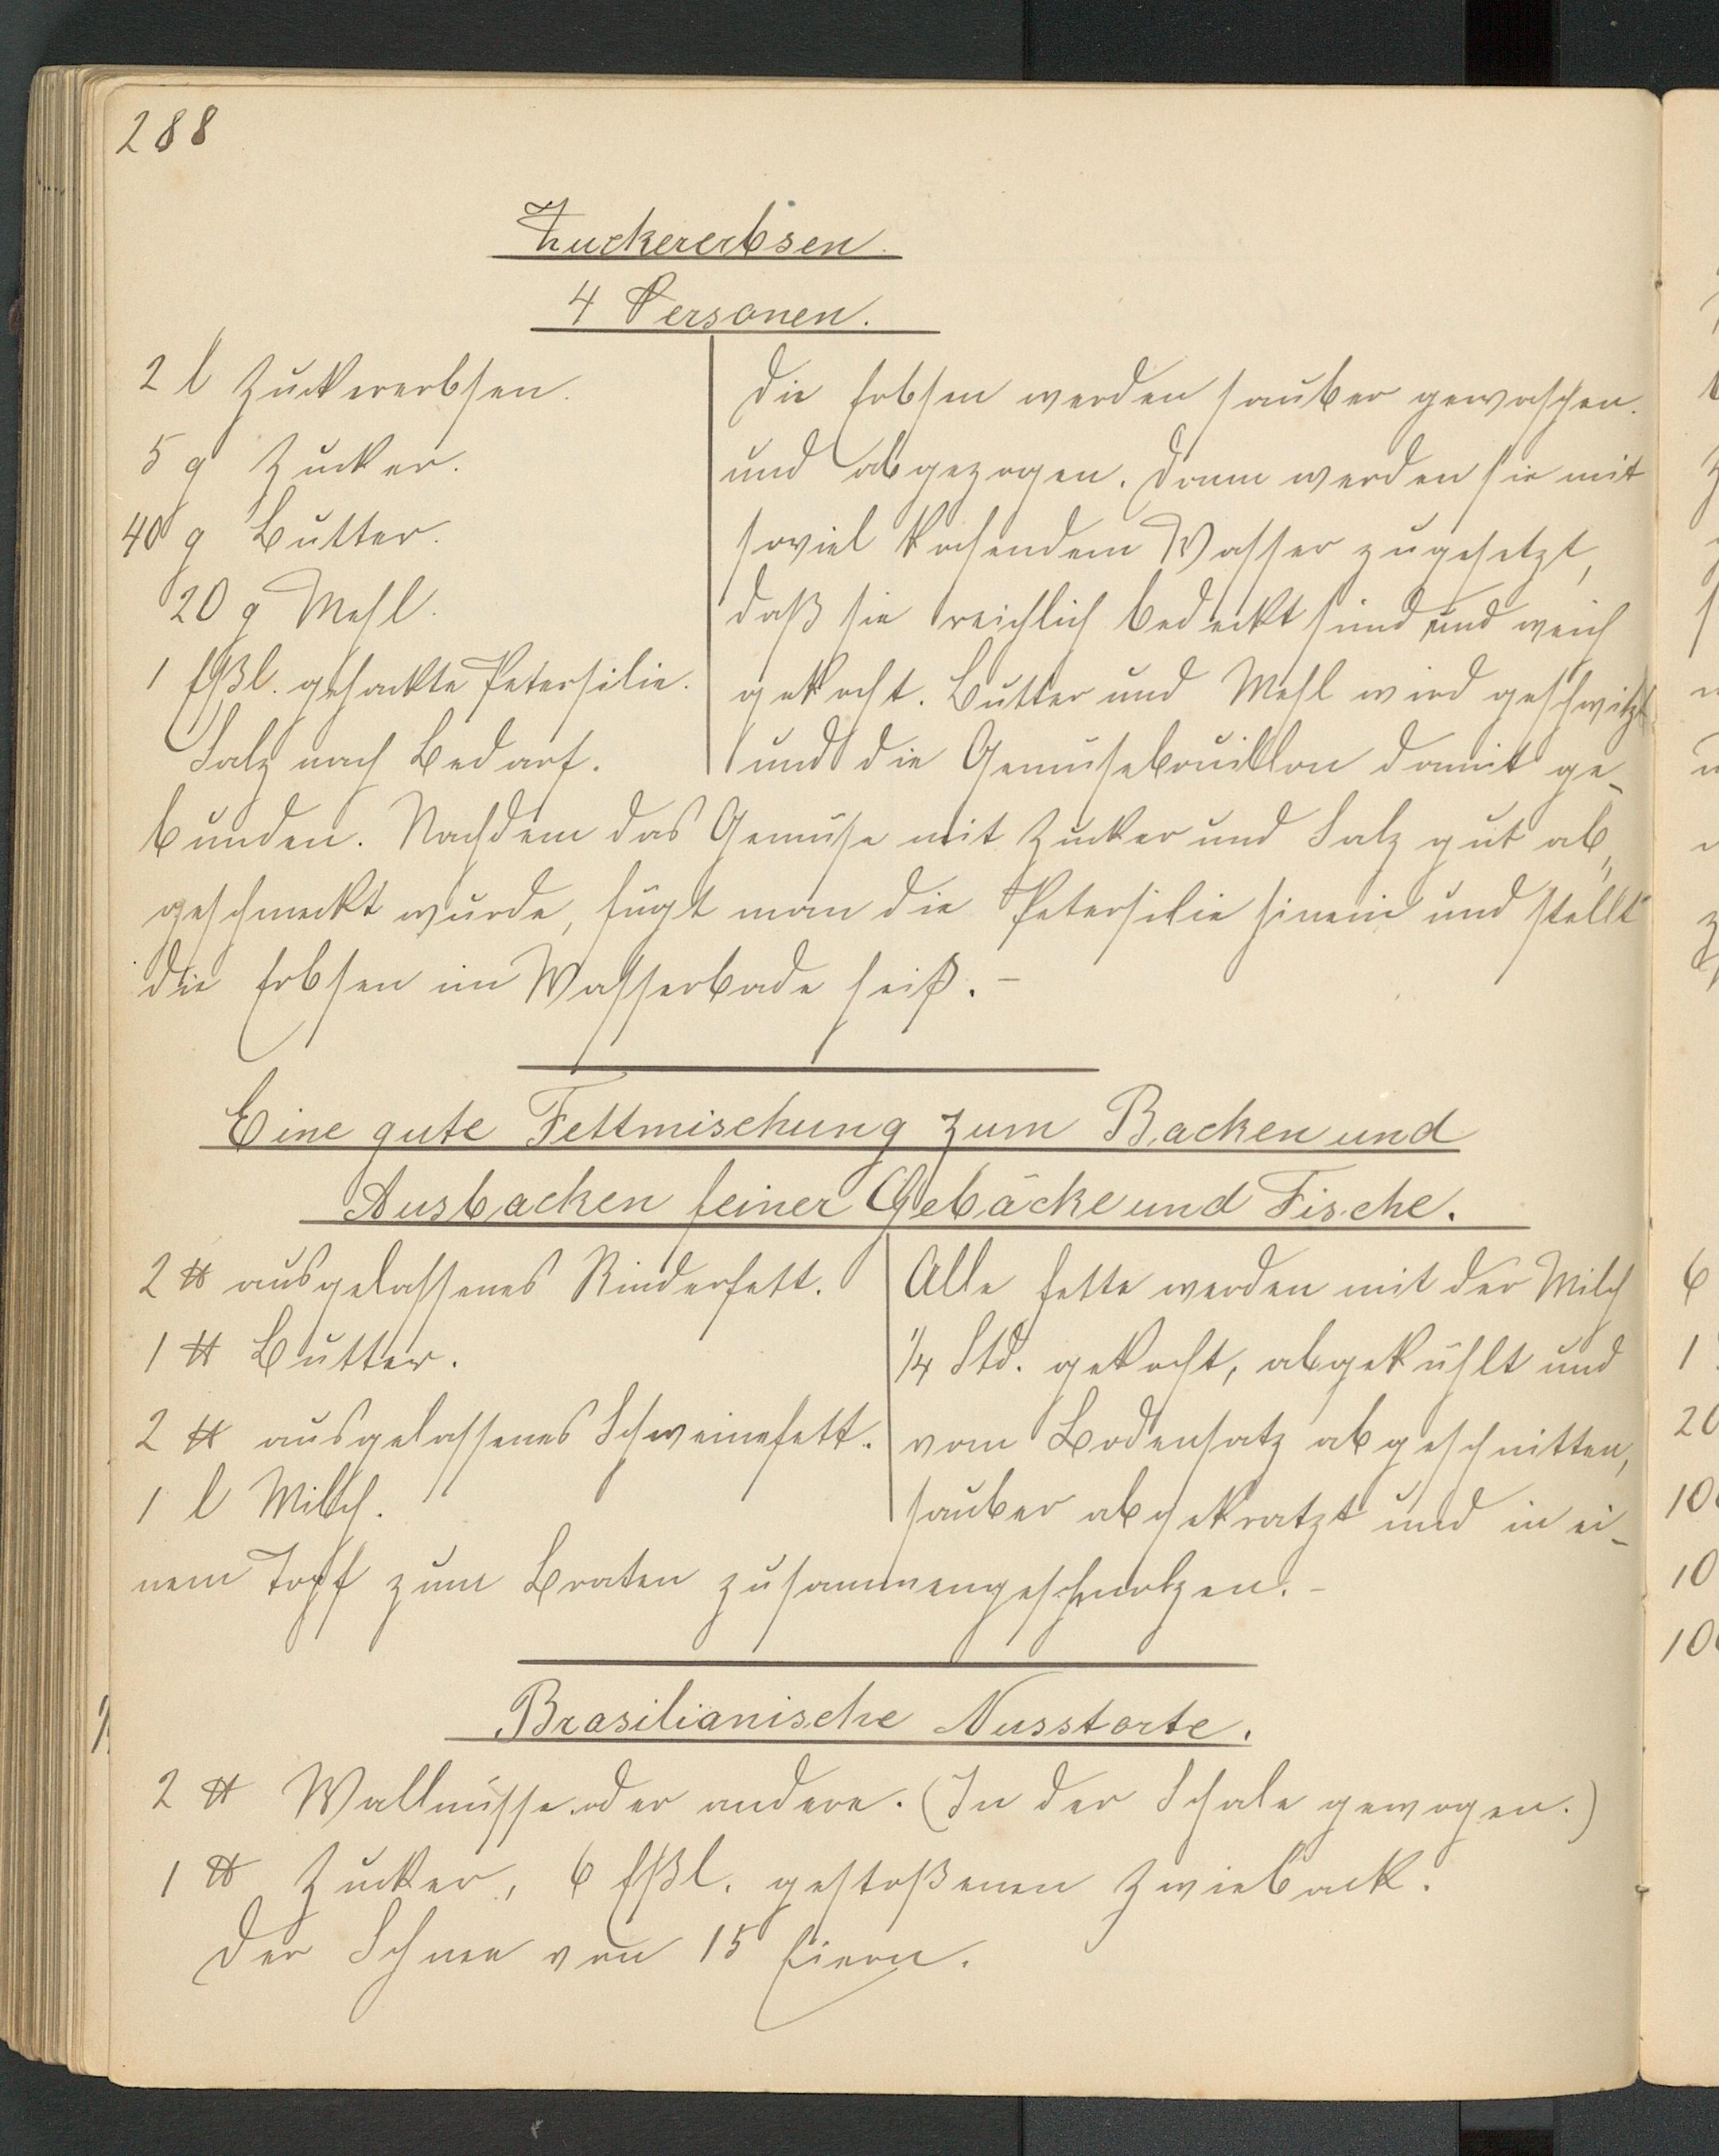 288
Zuckererbsen.
4 Personen.
2 l Zuckererbsen.
5 g Zucker.
40 g Butter.
20 g Mehl.
1 Eßl. gehackte Petersilie.
Salz nach Bedarf.
Die Erbsen werden sauber gewaschen.
und abgezogen. Dann werden sie mit
soviel kochendem Wasser zugesetzt,
daß sie reichlich bedeckt sind und weich
gekocht. Butter und Mehl wird geschwitzt
und die Gemüsebouillon damit ge-
bunden. Nachdem das Gemüse mit Zucker und Salz gut ab-
geschmeckt wurde, fügt man die Petersilie hinein und stellt
die Erbsen im Wasserbade heiß. –
Eine gute Fettmischung zum Backen und
Ausbacken feiner Gebäcke und Fische.
2 ℔ ausgelassenes Rinderfett.
1 ℔ Butter.
2 ℔ ausgelassenes Schweinefett.
1 l Milch.
Alle Fette werden mit der Milch
1/4 Std. gekocht, abgekühlt und
vom Bodensatz abgeschnitten,
sauber abgekratzt und in ei-
nem Topf zum Braten zusammengeschmolzen. –
Brasilianische Nusstorte.
2 ℔ Wallnüsse oder andere. (In der Schale gewogen.)
1 ℔ Zucker, 6 Eßl. gestoßenen Zwieback.
Der Schnee von 15 Eiern.
6
1
20
10
10
10